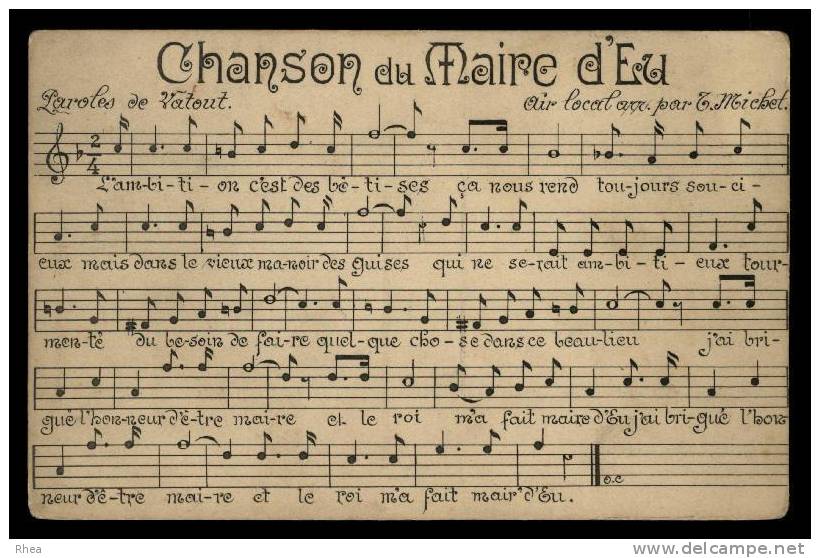 Chanson du Maire d'Eu
Paroles de Vatout.
Air local arr. par T. Michel.
2
4
L'am-bi-ti-on c'est des bê-ti-ses ça nous rend tou-jours sou-ci-
eux mais dans le vieux ma-noir des Guises qui ne se-rait am-bi-ti-eux tour-
men-té du be-soin de fai-re quel-que cho-se dans ce beau-lieu j'ai bri-
gué l'hon-neur d'ê-tre mai-re et le roi m'a fait maire d'Eu j'ai bri-gué l'hon-
neur d'ê-tre mai-re et le roi m'a fait mair' d'Eu.
D.C
Rhea
www.delcampe.net